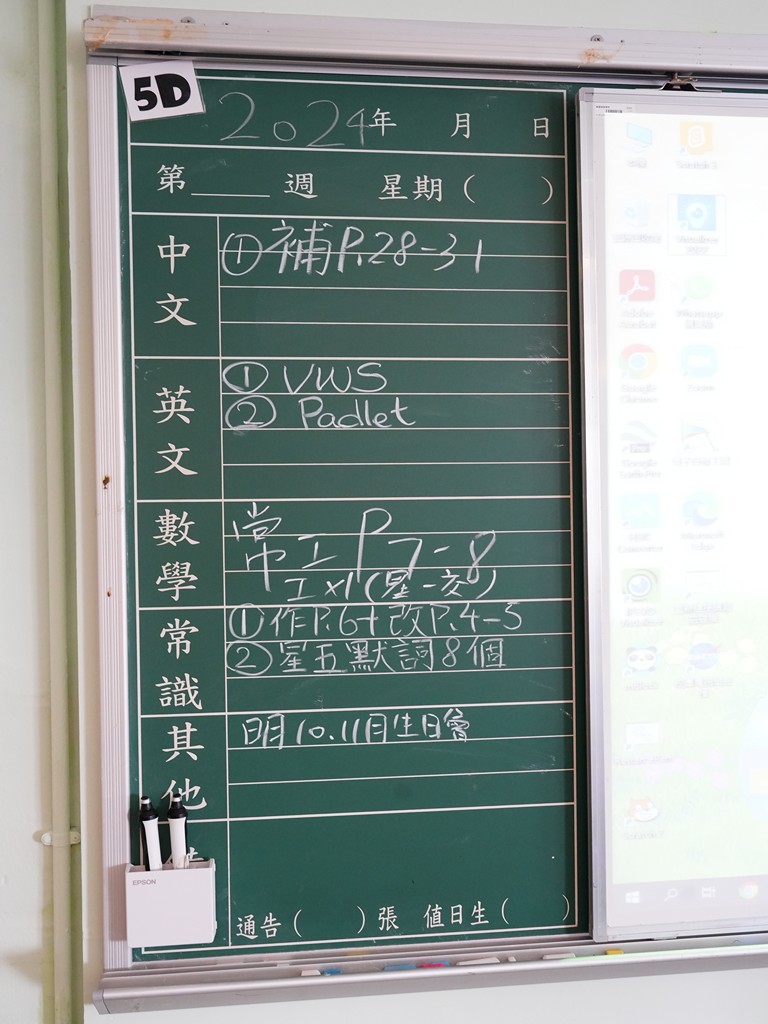 5D
2024年 月 日
第____週 星期( )
中文
①補P.28-31
英文
① VWS
② Padlet
數學
常工P7-8
工x1(星一交)
常識
①作P.6+改P.4-5
②星五默詞8個
其他
明10.11月生日會
EPSON
通告( )張 值日生( )